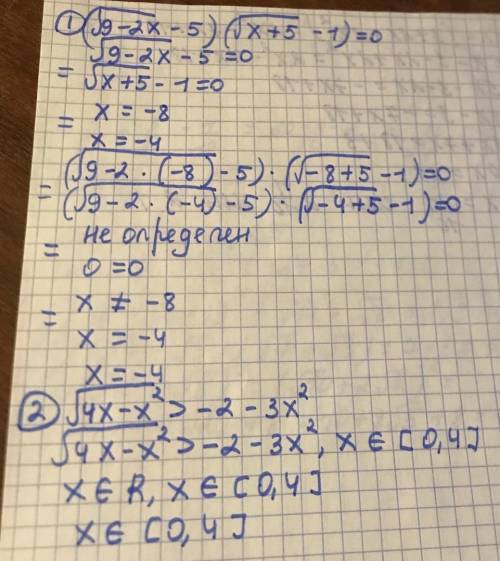 ① (√9-2x - 5) (√x+5 - 1)=0
√9-2x - 5 = 0
= √x+5 - 1 = 0
= x = -8
x = -4
= (√9-2 · (-8) - 5) · (√-8+5 - 1) = 0
(√9-2 · (-4) - 5) · (√-4+5 - 1) = 0
= не определен
0 = 0
= x ≠ -8
x = -4
x = -4
② √4x-x² > -2 - 3x²
√4x-x² > -2 - 3x², x ∈ [0,4]
x ∈ R, x ∈ [0,4]
x ∈ [0,4]